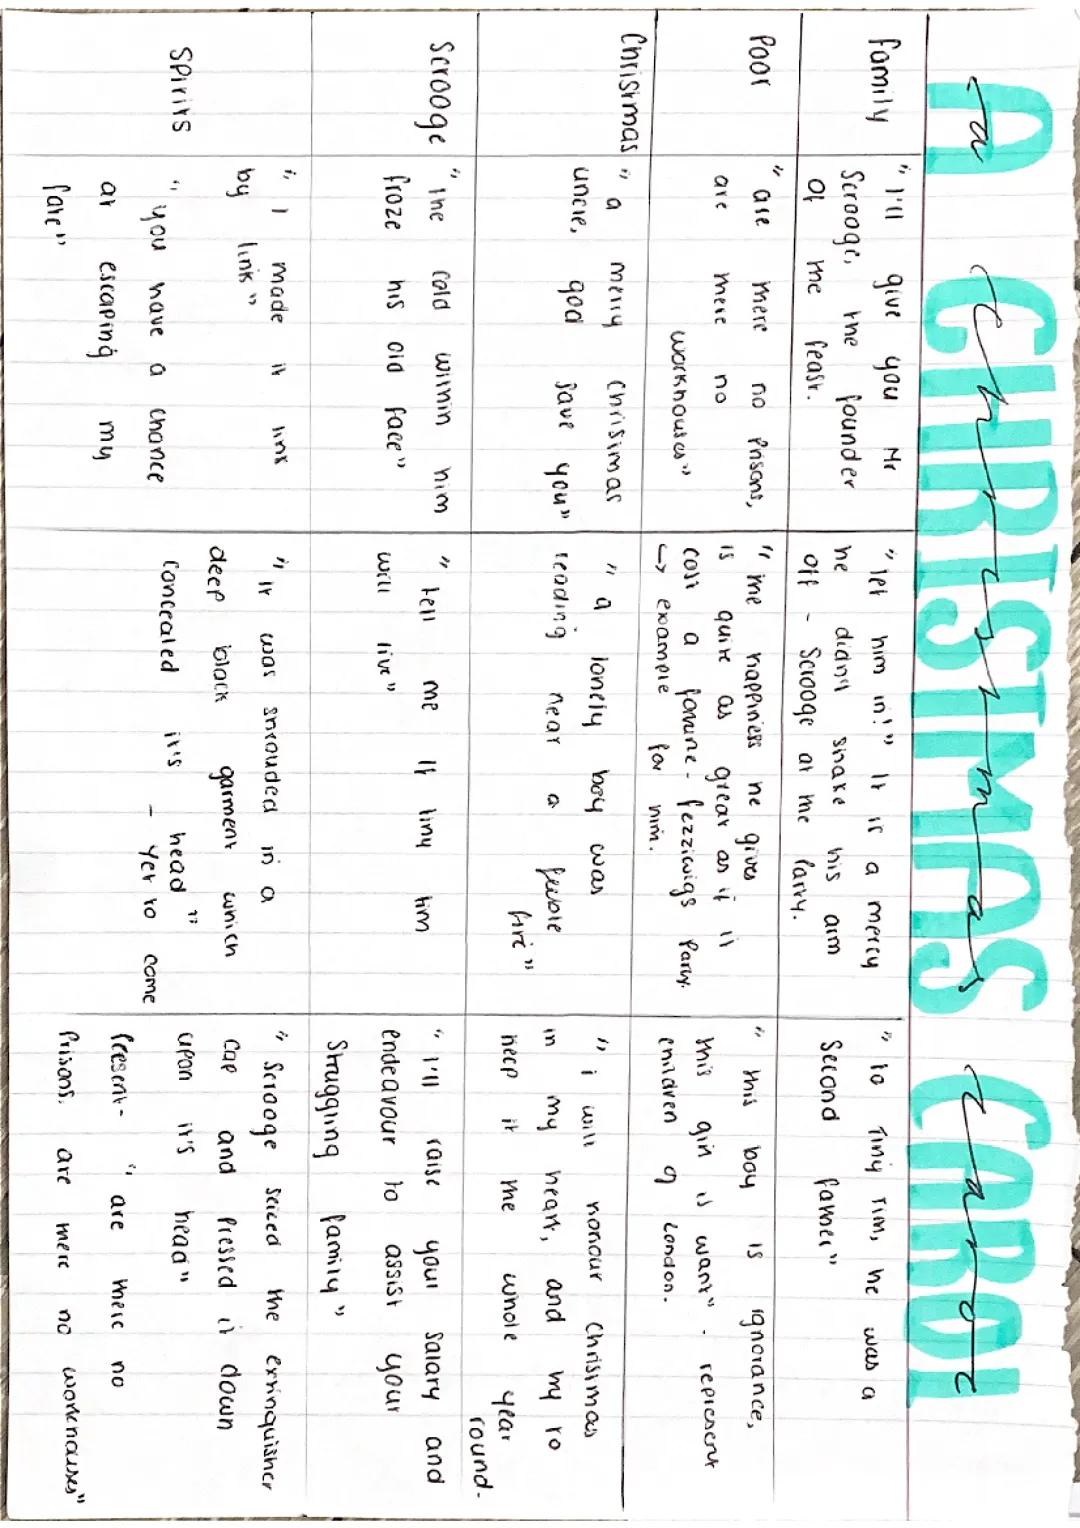 A CHRISTMAS CAROL
a christmas carol
family
"I'll give you Mr
Scrooge, the founder
of the feast.
"let him in!" It is a mercy
he didn't shake his arm
off - Scrooge at the party.
"To Tiny Tim, he was a
second father"
Poor
"are there no prisons,
are there no
workhouses"
"the happiness he gives
is quite as great as if it
cost a fortune - fezziwigs party.
→ example for him.
"this boy is ignorance,
this girl is want" - represent
children of London.
Christmas
"a merry christmas
uncle, god save you"
"a lonely boy was
reading near a feeble
fire"
"i will honour Christmas
in my heart, and try to
keep it the whole year
round.
Scrooge
"the cold within him
froze his old face"
"tell me if tiny tim
will live"
"I'll raise your salary and
endeavour to assist your
struggling family"
Spirits
"I made it link
by link"
"you have a chance
at escaping my
fate"
"it was shrouded in a
deep black garment which
concealed it's head"
- Yet to come
"Scrooge seiced the extinquisher
cap and pressed it down
upon it's head"
Present- "are there no
prisons, are there no workhouses"